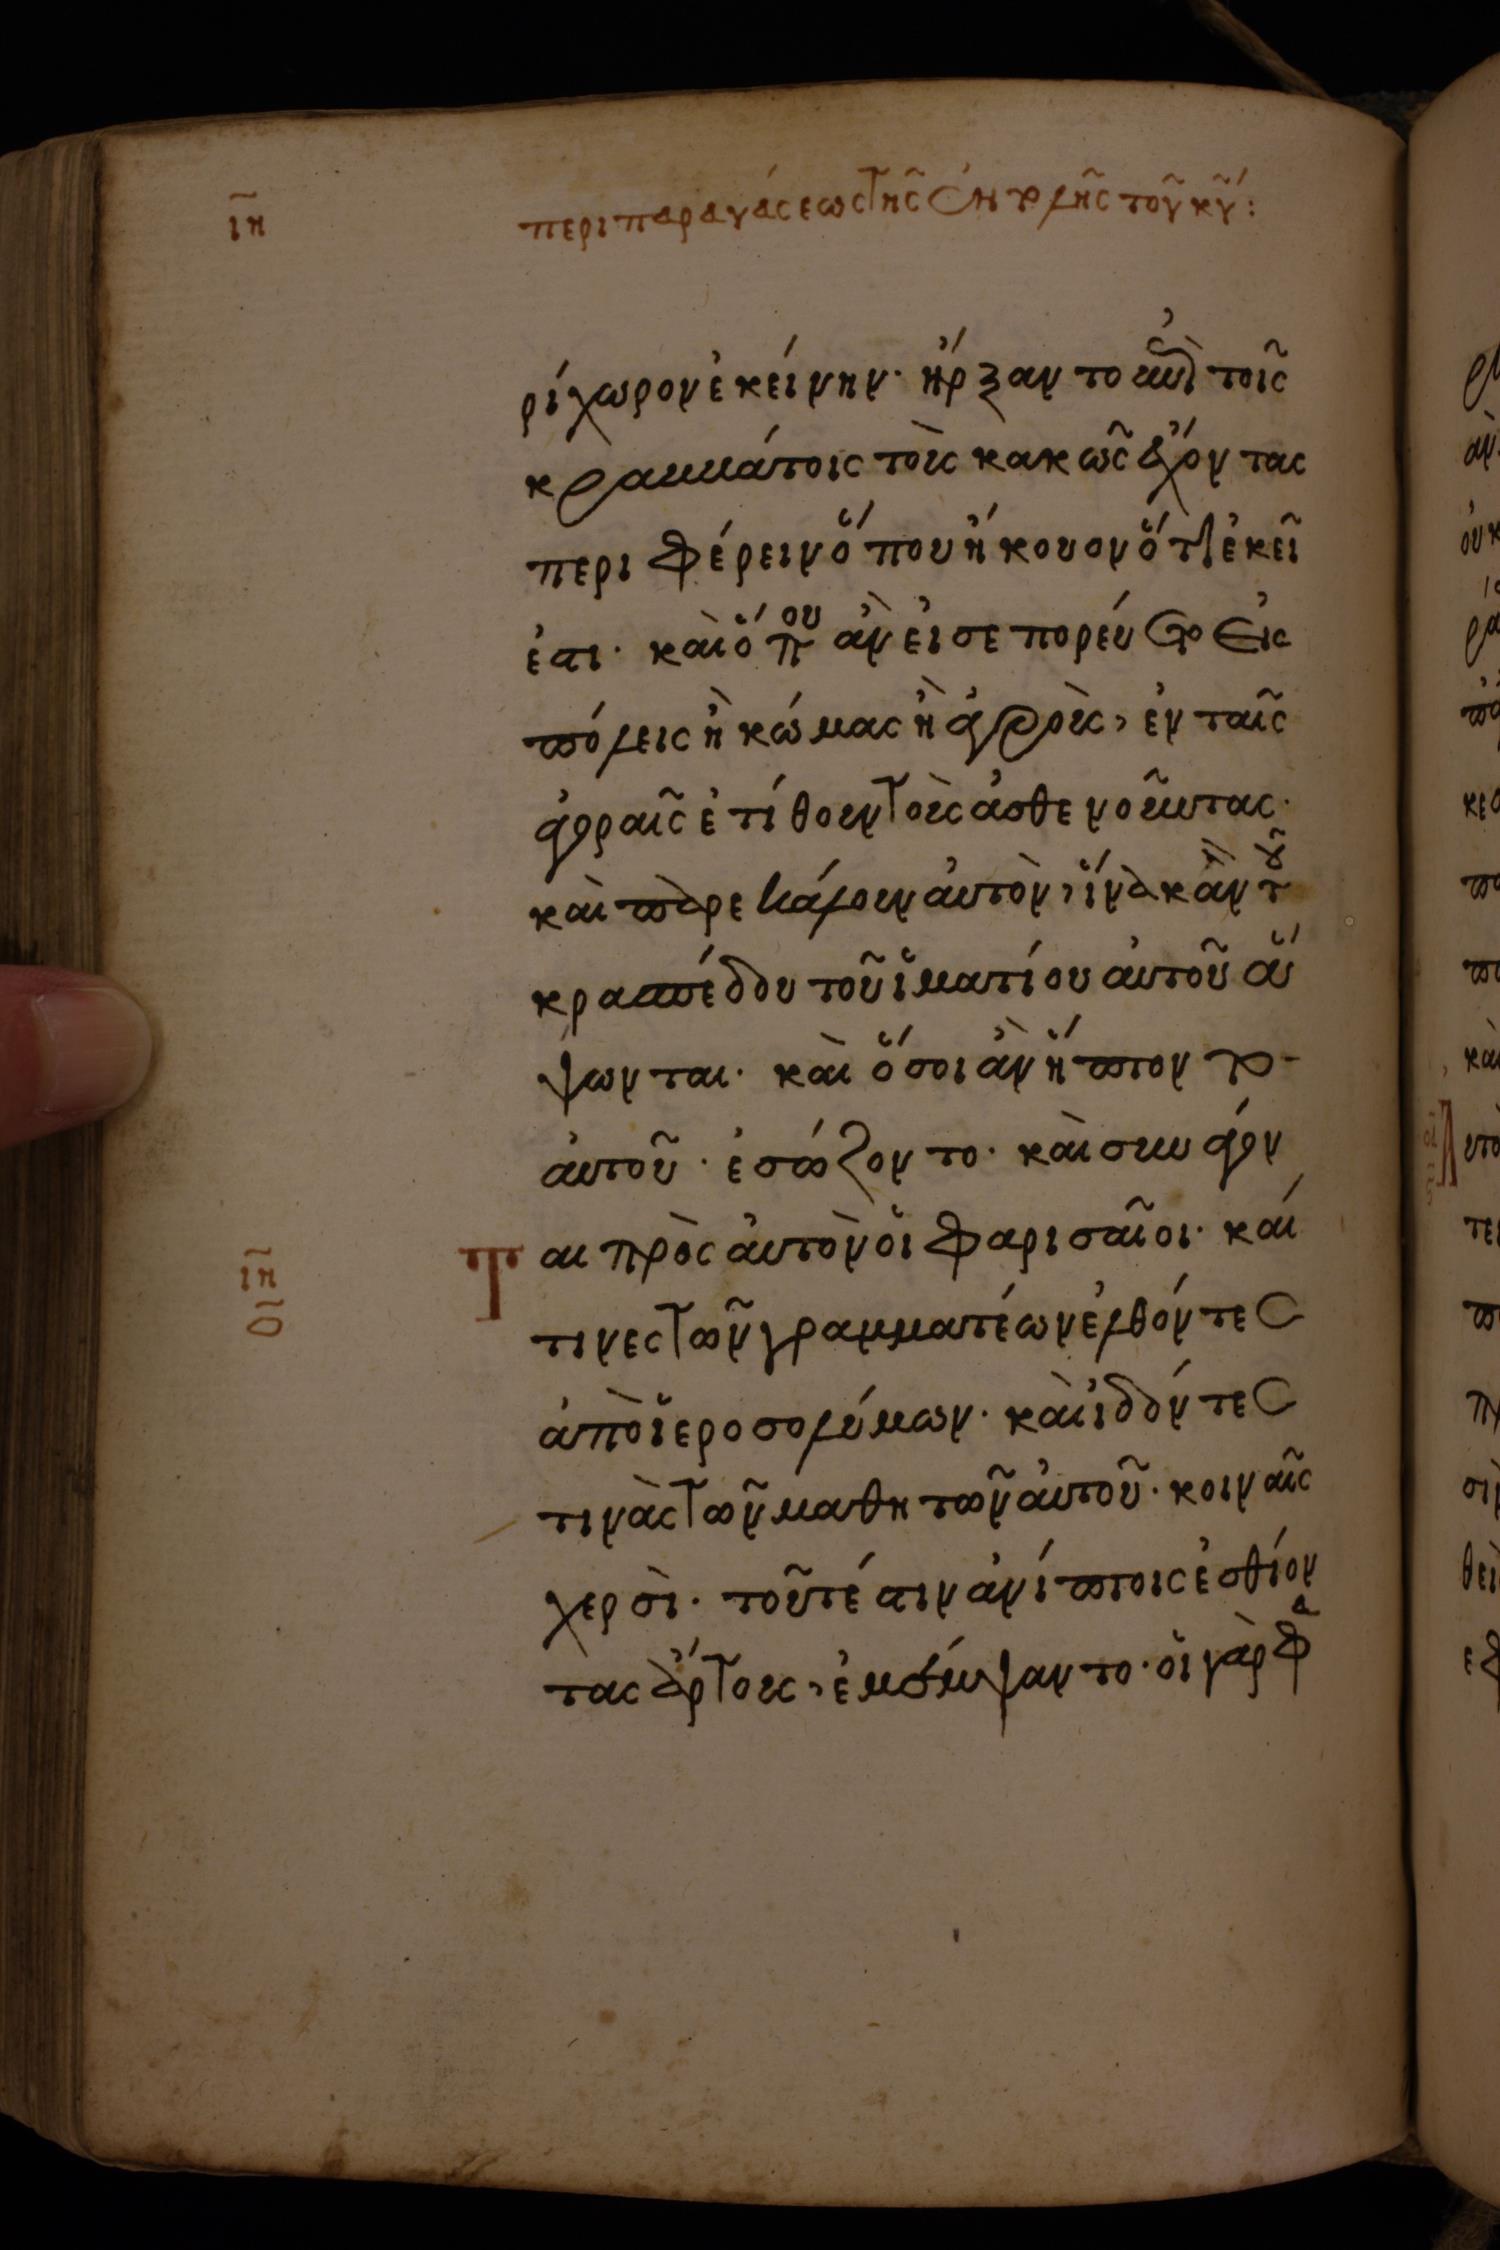 ιη περι παραβάσεως τῆς ἐντολῆς τοῦ κυ:
ρίχωρον ἐκείνην· ἤρξαντο ἐπὶ τοῖς
κραμμάτοις τοὺς κακῶς ἔχοντας
περιφέρειν ὅπου ἤκουον ὅτι ἐκεῖ
ἐστι· καὶ ὅπου ἂν εἰσεπορεύετο εἰς
πόλεις ἢ κώμας ἢ ἀγροὺς, ἐν ταῖς
ἀγοραῖς ἐτίθουν τοὺς ἀσθενοῦντας·
καὶ παρεκάλουν αὐτὸν, ἵνα κἂν τοῦ
κρασπέδου τοῦ ἱματίου αὐτοῦ ἅ
ψωνται· καὶ ὅσοι ἂν ἥπτοντο
αὐτοῦ· ἐσώζοντο· καὶ συνάγον
ται πρὸς αὐτὸν οἱ φαρισαῖοι· καί
ιη
ο
τινες τῶν γραμματέων ἐλθόντες
ἀπὸ ἱεροσολύμων· καὶ ἰδόντες
τινὰς τῶν μαθητῶν αὐτοῦ· κοιναῖς
χερσὶ· τοῦτέστιν ἀνίπτοις ἐσθίον
τας ἄρτους, ἐμέμψαντο· οἱ γὰρ φα